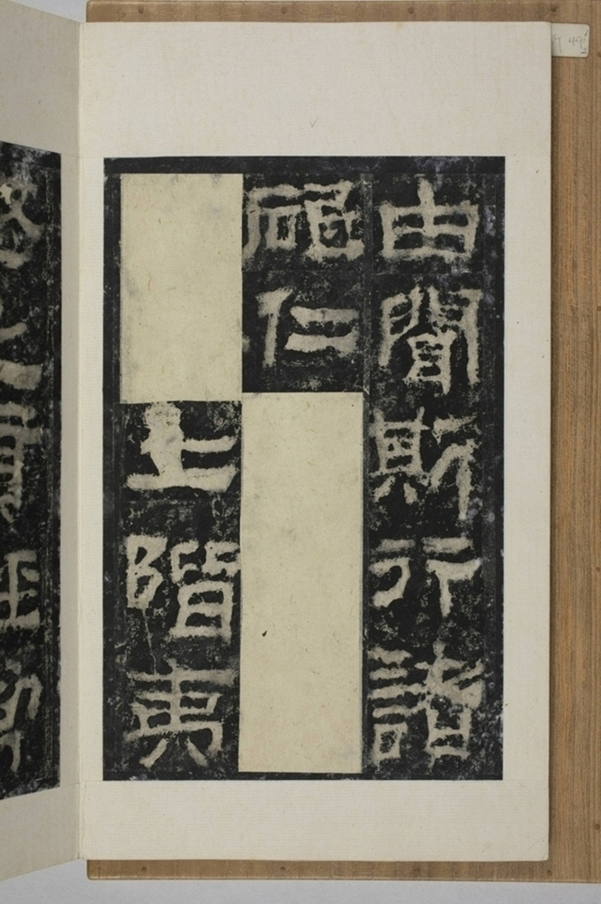 由聞斯行諸
砥仁
土階夷